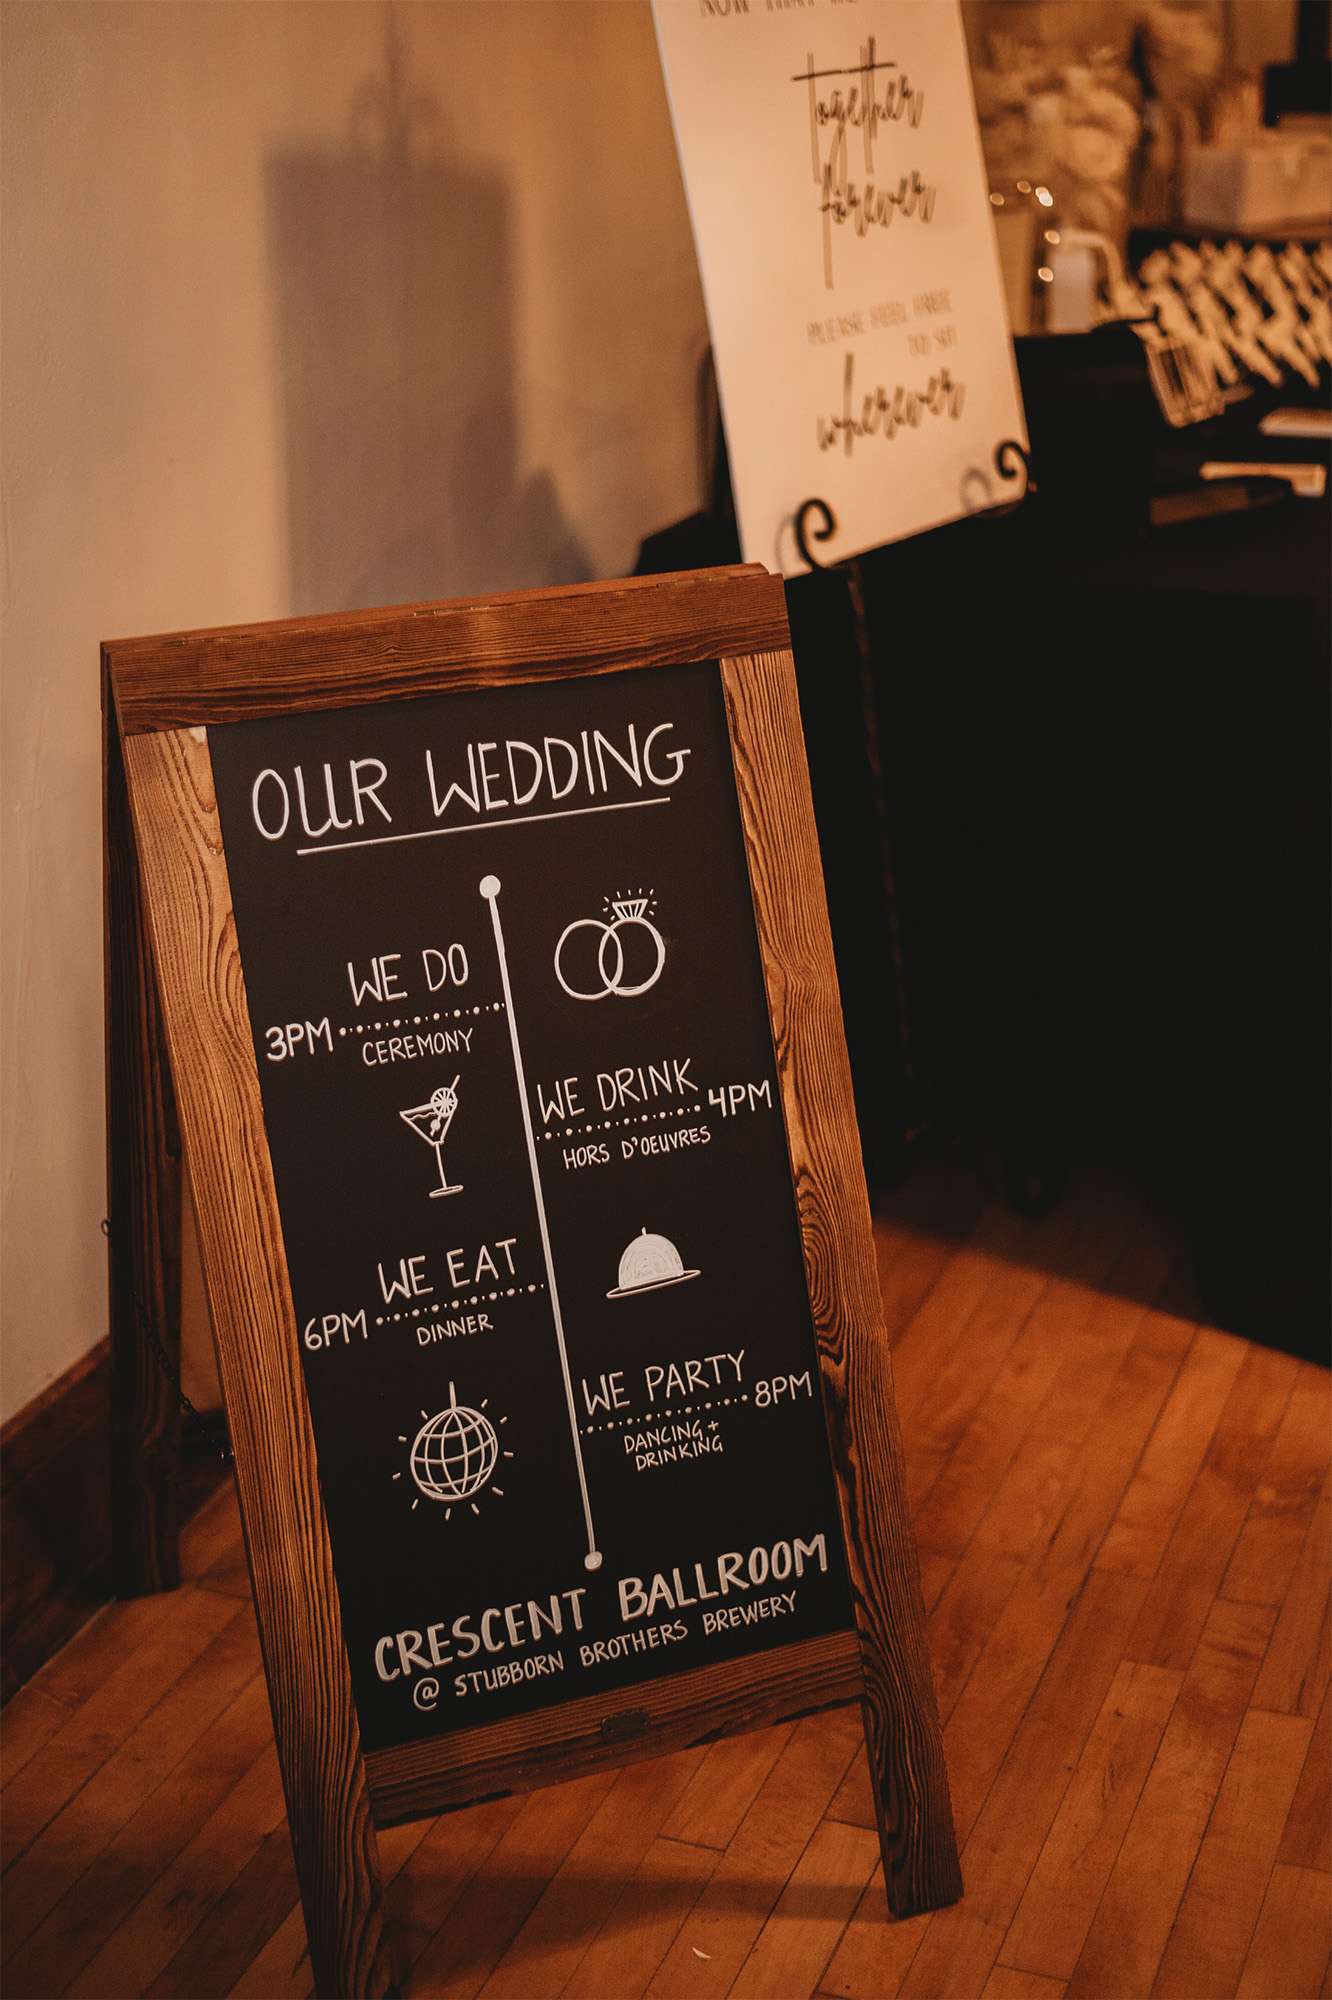 NOW THAT WE
together
forever
PLEASE FEEL FREE
TO SIT
wherever
OUR WEDDING
WE DO
3PM
CEREMONY
WE DRINK
4PM
HORS D'OEUVRES
WE EAT
6PM
DINNER
WE PARTY
8PM
DANCING +
DRINKING
CRESCENT BALLROOM
@ STUBBORN BROTHERS BREWERY